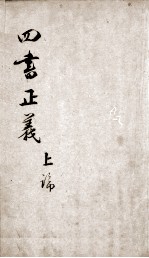 四書正義
上論